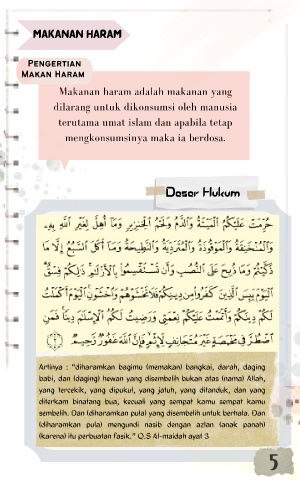 MAKANAN HARAM
PENGERTIAN
MAKAN HARAM
Makanan haram adalah makanan yang
dilarang untuk dikonsumsi oleh manusia
terutama umat islam dan apabila tetap
mengkonsumsinya maka ia berdosa.
Dasar Hukum
حُرِّمَتْ عَلَيْكُمُ الْمَيْتَةُ وَالدَّمُ وَلَحْمُ الْخِنْزِيرِ وَمَآ أُهِلَّ لِغَيْرِ اللَّهِ بِهِ
وَالْمُنْخَنِقَةُ وَالْمَوْقُوذَةُ وَالْمُتَرَدِّيَةُ وَالنَّطِيحَةُ وَمَآ أَكَلَ السَّبُعُ إِلَّا مَا
ذَكَّيْتُمْ وَمَا ذُبِحَ عَلَى النُّصُبِ وَأَن تَسْتَقْسِمُوا۟ بِالْأَزْلَٰمِ ذَٰلِكُمْ فِسْقٌ
الْيَوْمَ يَئِسَ الَّذِينَ كَفَرُوا۟ مِن دِينِكُمْ فَلَا تَخْشَوْهُمْ وَاخْشَوْنِ الْيَوْمَ أَكْمَلْتُ
لَكُمْ دِينَكُمْ وَأَتْمَمْتُ عَلَيْكُمْ نِعْمَتِي وَرَضِيتُ لَكُمُ الْإِسْلَٰمَ دِينًا فَمَنِ
اضْطُرَّ فِي مَخْمَصَةٍ غَيْرَ مُتَجَانِفٍ لِّإِثْمٍ فَإِنَّ اللَّهَ غَفُورٌ رَّحِيمٌ ٣
Artinya : "diharamkan bagimu (memakan) bangkai, darah, daging
babi, dan (daging) hewan yang disembelih bukan atas (nama) Allah,
yang tercekik, yang dipukul, yang jatuh, yang ditanduk, dan yang
diterkam binatang bua, kecuali yang sempat kamu sempat kamu
sembelih. Dan (diharamkan pula) yang disembelih untuk berhala. Dan
(diharamkan pula) mengundi nasib dengan azlan (anak panah)
(karena) itu perbuatan fasik." Q.S Al-maidah ayat 3
5